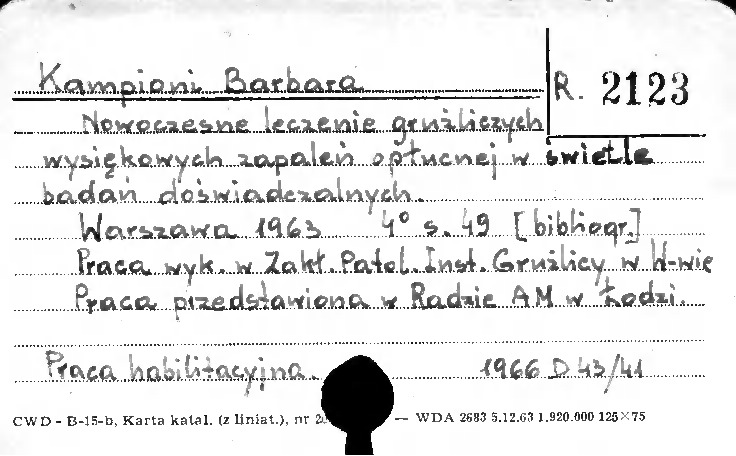 Kampioni Barbara
R. 2123
Nowoczesne leczenie gruźliczych
wysiękowych zapaleń opłucnej w świetle
badań doświadczalnych.
Warszawa 1963 4° s. 49 [bibliogr.]
Praca wyk. w Zakł. Patol. Inst. Gruźlicy w W-wie
Praca przedstawiona w Radzie AM w Łodzi.
Praca habilitacyjna. 1966 D 43/41
CWD - B-15-b, Karta katal. (z liniat.), nr — WDA 2683 5.12.63 1.920.000 125×75